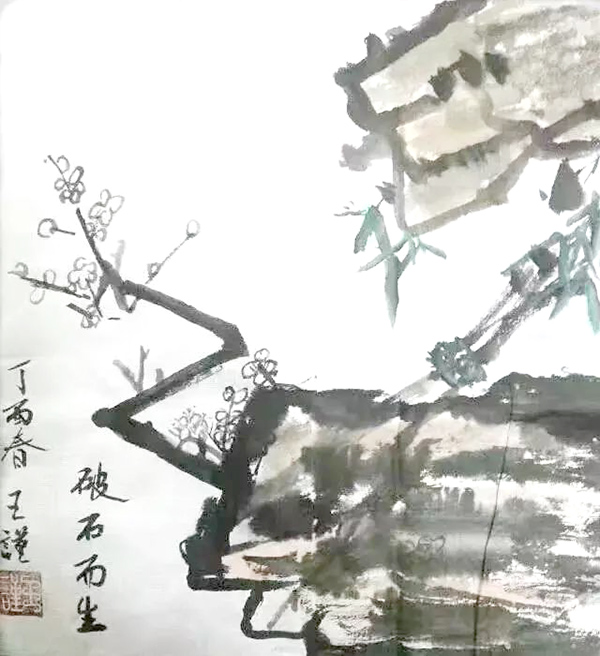 破石而生
丁酉春 王谨